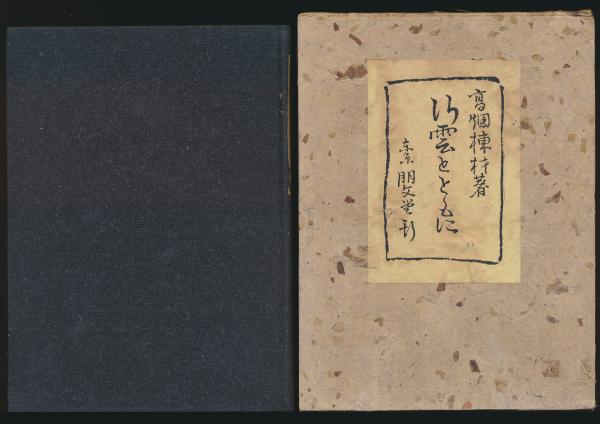 高畑棟材著
行雲とともに
東京 朋文堂刊